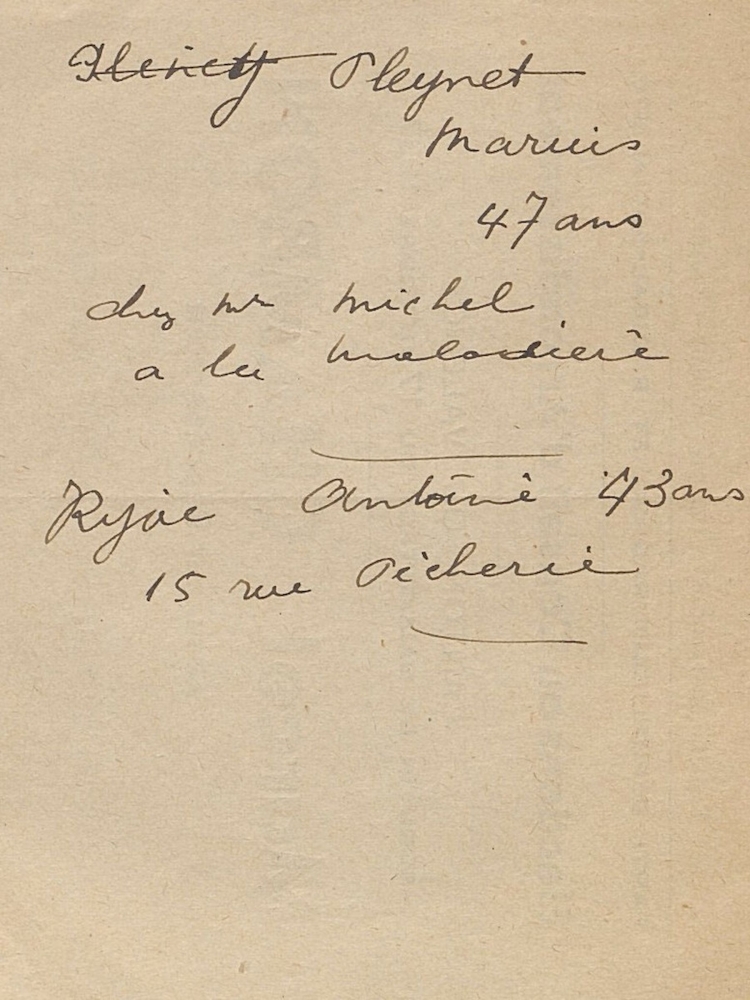 Pleynet
Marius
47 ans
chez Mr Michel
a la maladiere
Antoine 43 ans
15 rue Pêcherie